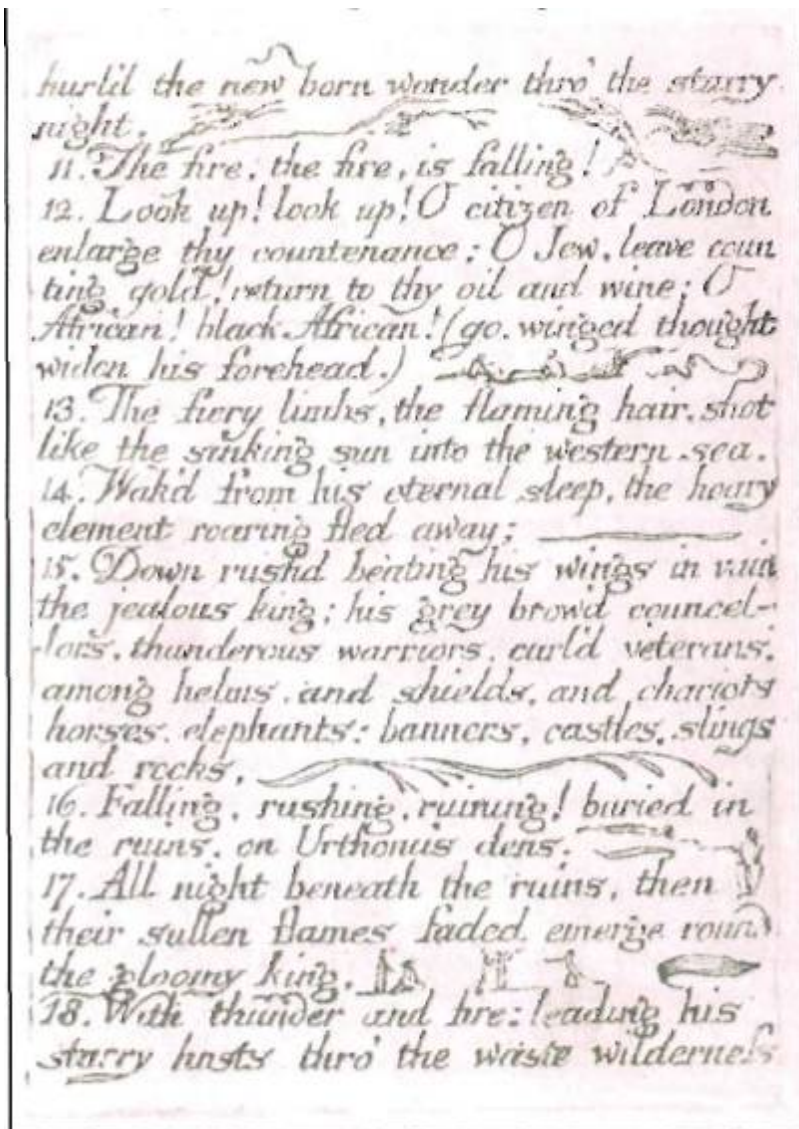 hurl'd the new born wonder thro' the starry
night.
11. The fire, the fire, is falling!
12. Look up! look up! O citizen of London
enlarge thy countenance; O Jew, leave coun
ting gold! return to thy oil and wine; O
African! black African! (go. winged thought
widen his forehead.)
13. The fiery limbs, the flaming hair, shot
like the sinking sun into the western sea.
14. Wak'd from his eternal sleep, the hoary
element roaring fled away;
15. Down rush'd beating his wings in vain
the jealous king; his grey brow'd councel-
lors, thunderous warriors, curl'd veterans,
among helms, and shields, and chariots
horses, elephants: banners, castles, slings
and rocks,
16. Falling, rushing, ruining! buried in
the ruins, on Urthona's dens.
17. All night beneath the ruins, then
their sullen flames faded emerge round
the gloomy king,
18. With thunder and fire: leading his
starry hosts thro' the waste wilderness